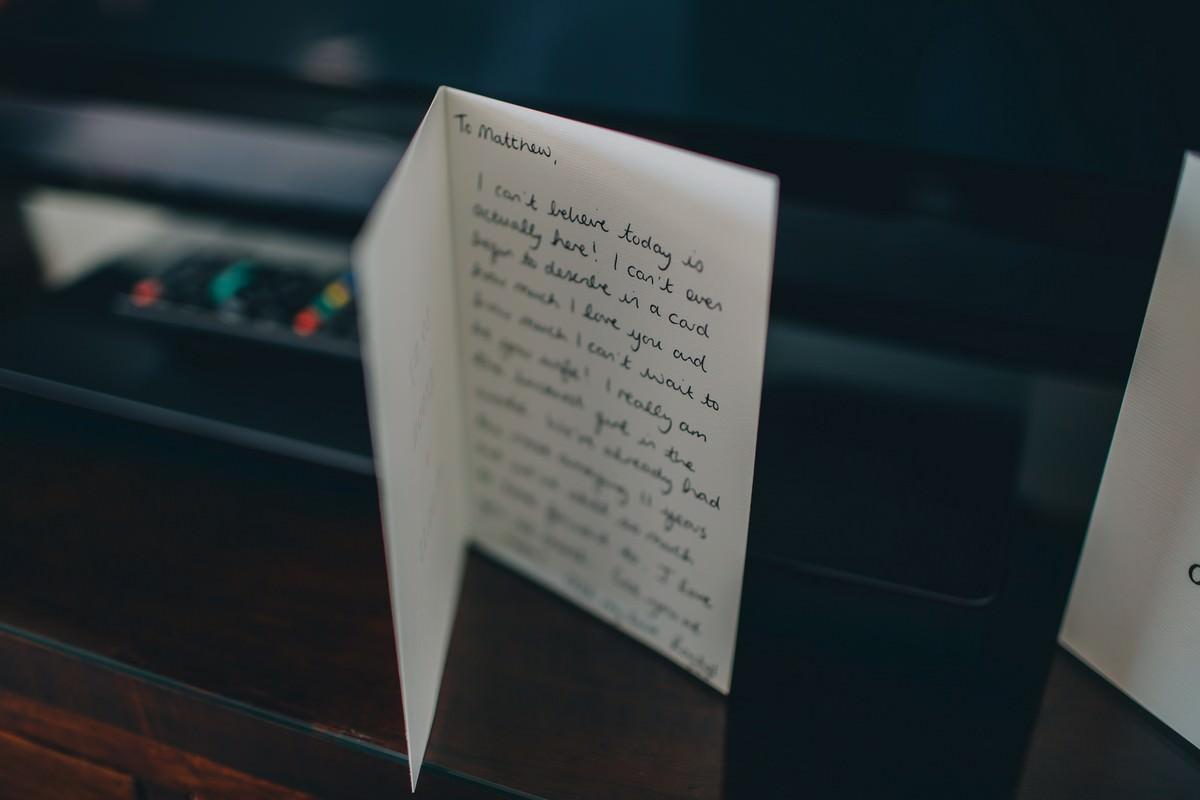 To Matthew,
I can't believe today is
actually here! I can't even
begin to describe in a card
how much I love you and
how much I can't wait to
be your wife! I really am
the luckiest girl in the
world. We've already had
the most amazing 11 years
so much
forward to. I have